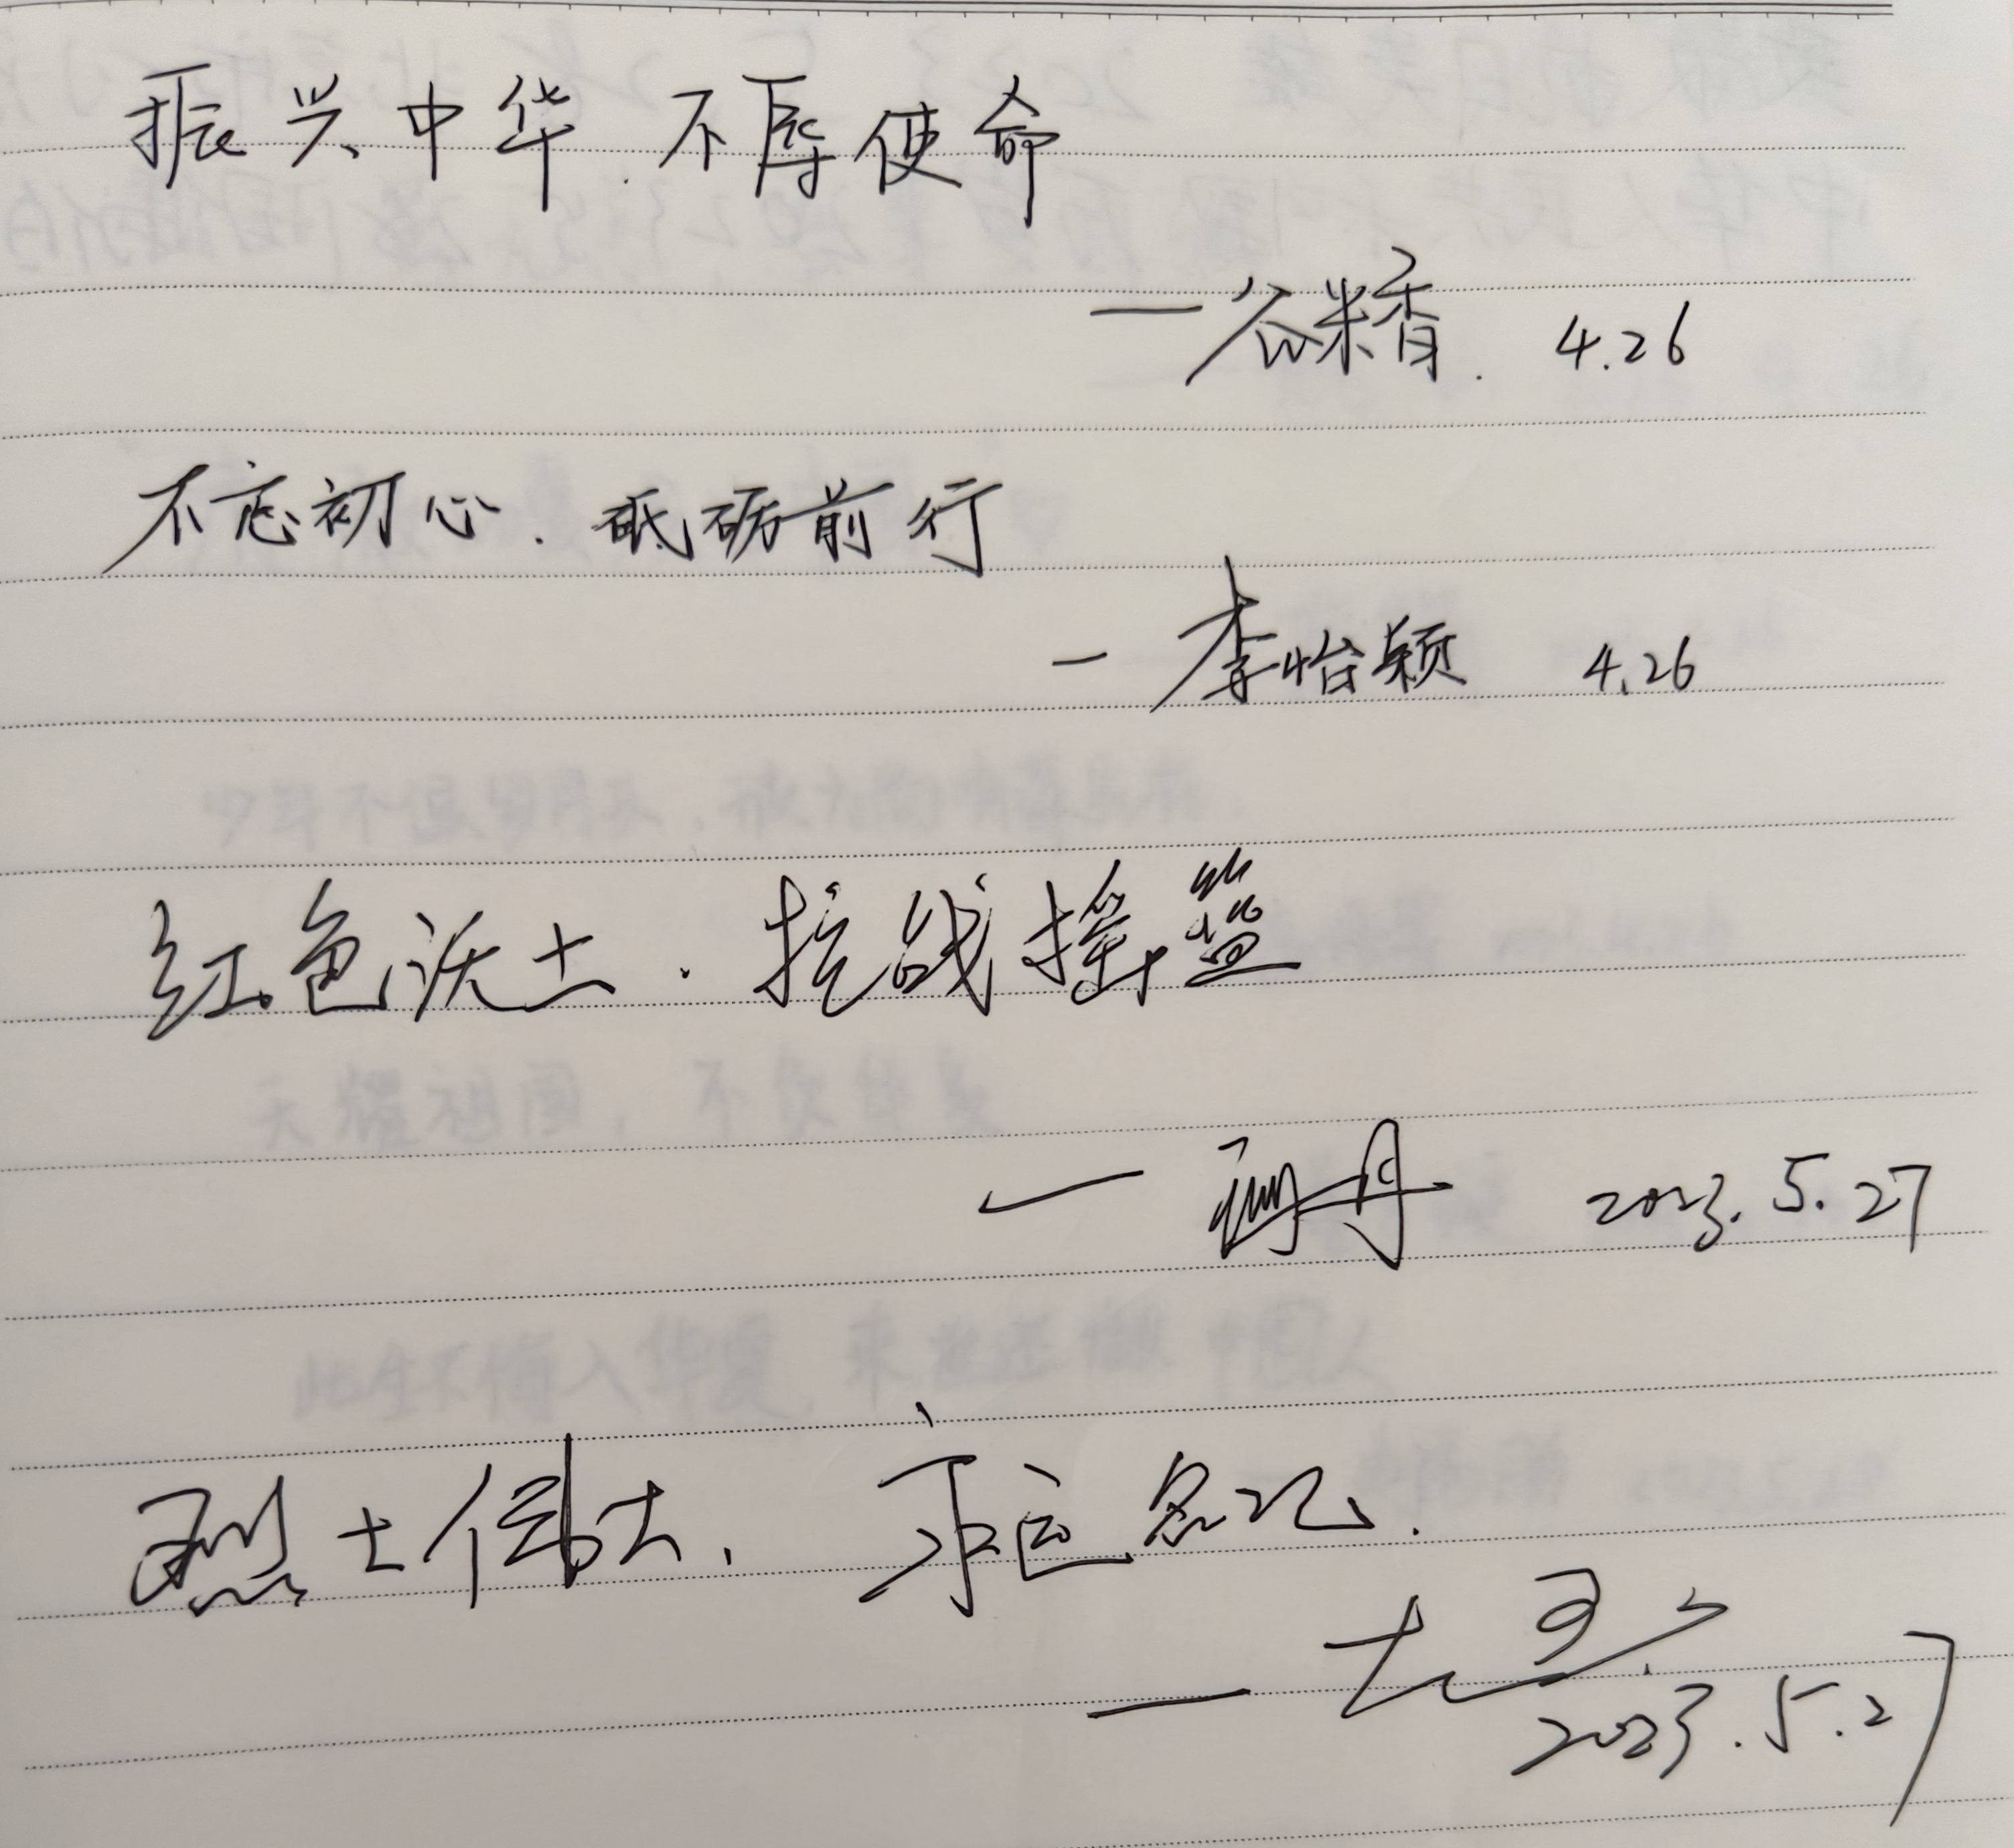 振兴中华.不辱使命
—谷米香. 4.26
不忘初心.砥砺前行
—李怡颖 4.26
红色沃土.抗战摇篮
— 丹 2023.5.27
烈士伟大,永远铭记.
—
2023.5.27